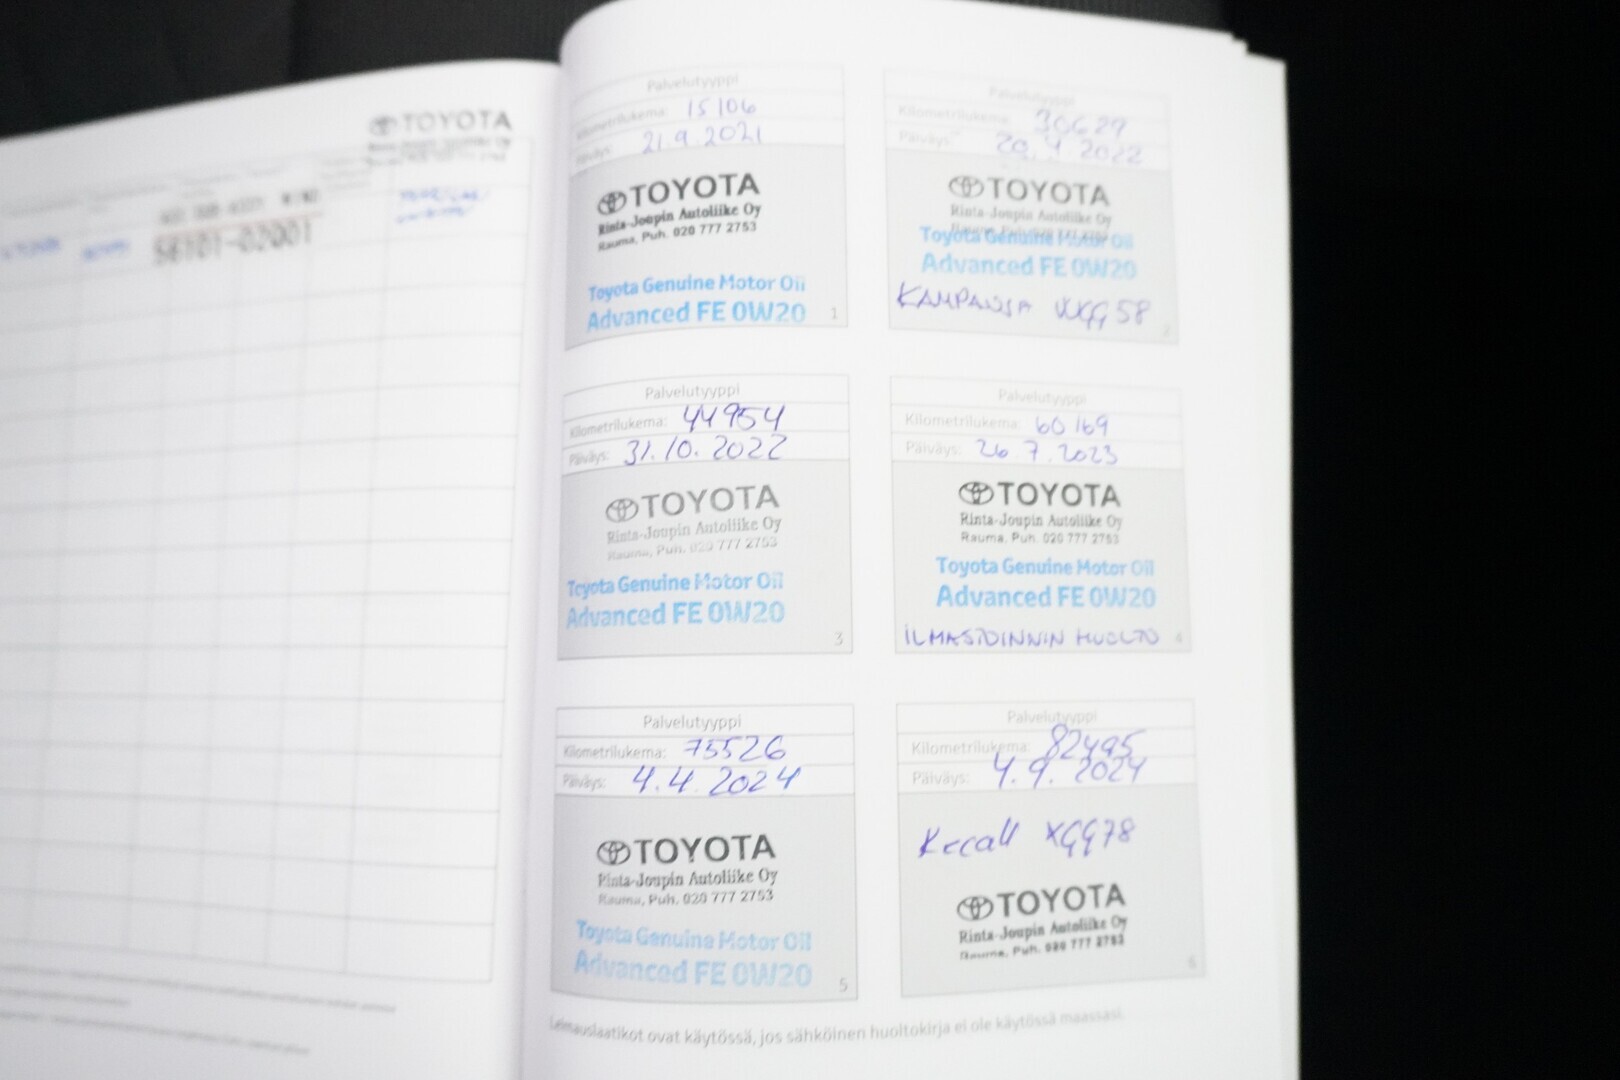 TOYOTA
56101-02001
Palvelutyyppi
Kilometrilukema: 15106
Päiväys: 21.9.2021
TOYOTA
Rinta-Joupin Autoliike Oy
Rauma, Puh. 020 777 2753
Toyota Genuine Motor Oil
Advanced FE 0W20
1
Palvelutyyppi
Kilometrilukema: 30629
Päiväys: 20.4.2022
TOYOTA
Rinta-Joupin Autoliike Oy
Toyota Genuine Motor Oil
Advanced FE 0W20
KAMPANJA
2
Palvelutyyppi
Kilometrilukema: 44954
Päiväys: 31.10.2022
TOYOTA
Rinta-Joupin Autoliike Oy
Rauma, Puh. 020 777 2753
Toyota Genuine Motor Oil
Advanced FE 0W20
3
Palvelutyyppi
Kilometrilukema: 60169
Päiväys: 26 7.2023
TOYOTA
Rinta-Joupin Autoliike Oy
Rauma, Puh. 020 777 2753
Toyota Genuine Motor Oil
Advanced FE 0W20
ILMASTOINNIN HUOLTO
4
Palvelutyyppi
Kilometrilukema: 75526
Päiväys: 4.4.2024
TOYOTA
Rinta-Joupin Autoliike Oy
Rauma, Puh. 020 777 2753
Toyota Genuine Motor Oil
Advanced FE 0W20
5
Palvelutyyppi
Kilometrilukema: 82495
Päiväys: 4.9.2024
Recall XGG78
TOYOTA
Rinta-Joupin Autoliike Oy
Rauma, Puh. 020 777 2753
6
Leimauslaatikot ovat käytössä, jos sähköinen huoltokirja ei ole käytössä maassasi.